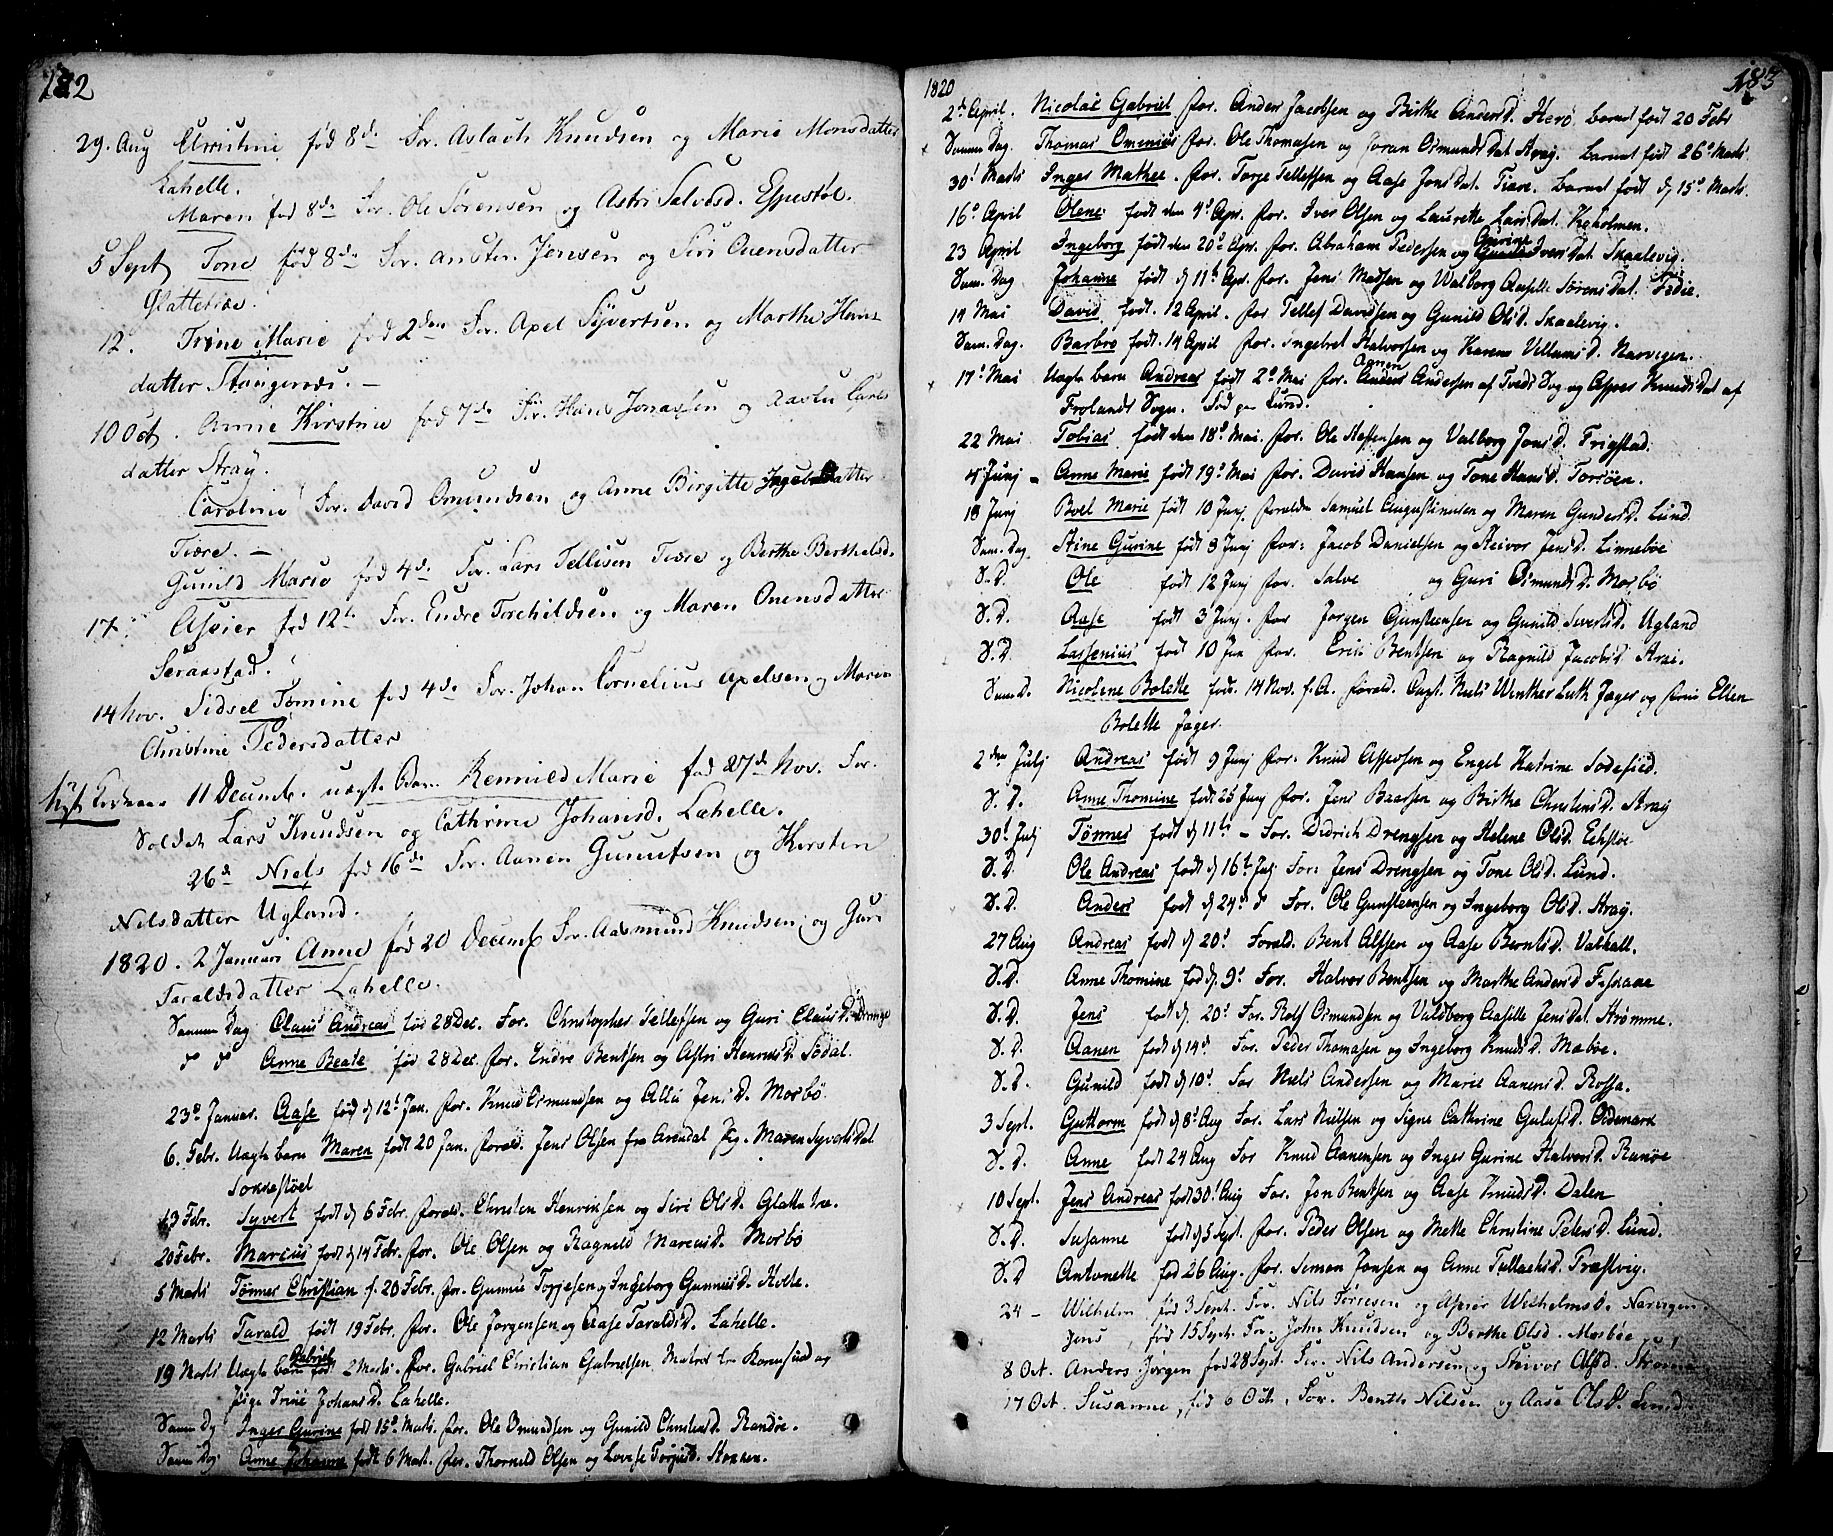 182
29. Aug Christine fød 8de For. Aslach Knudsen og Marie Monsdatter
Lahelle.
Maren fød 8de For. Ole Sørensen og Astri Salvesd. Espestøl.
5 Sept Tone fød 8de For. Jensen og Siri Onensdatter
Glattetræ.
12. Trine Marie fød 2den For. Axel Syvertsen og Marthe Hans
datter Stangenæs. —
10 Oct. Anne Kirstine fød 7de For. Hans Jonassen og
datter Stray.
Caroline For. David Omundsen og Anne Birgitte datter
Tiære. —
Gunild Marie fød 4de For. Lars Tellisen Tiære og Berthe Berthelsd.
17. Aspier fød 12te For. Endre Torchildsen og Maren Onensdatter
14 Nov. Sidsel Tomine fød 4de For. Johan Cornelius Axelsen og Maren
Christine Pedersdatter
11 Decemb. uægt. Barn. Marie fød 27de Nov. For.
Soldat Lars Knudsen og Cathrine Johansd. Lahelle.
26de Niels fød 16de For. Aanen Gunulfsen og Kirsten
Nilsdatter Ugland.
1820. 2 Januari Anne fød 20 Decemb For. Aasmund Knudsen og Guri
Taraldsdatter Lahelle.
Samme Dag Claus Andreas fød 28 Dec. For. Christopher Tellefsen og Guri Claus D.
d d Anne Beate fød 28 Dec. for. Endre Bentsen og Astri Henrics D. Sødal.
23d Januar. Aase fød d 12t Jan. for. Knud Osmundsen og Jens D. Morbø
6. Febr. Uægte barn Maren født 20 Jan. foræld. Jens Olsen fra Arendal pig. Maren Syverts Dat
13 Febr. Syvert født d 6 Febr. foræld. Christen Henriksen og Siri Ols D. Glattetræ.
20 Febr. Marcus født d 14 Febr. for. Ole Olsen og Ragnild Marcus D. Morbø
5 Marts Tønnes Christian f. 20 Febr. for. Gunnu Torjesen og Ingeborg Gunnus D.
12 Marts Tarald født 19 Febr. for. Ole Jørgensen og Aase Taralds D. Lahelle.
19 Marts Uægte barn Gabriel fød 2 Marts. For. Gabriel Christian Gabrielsen, Matros fra og
Pige Trine Johans D. Lahelle.
Samm Dg Inger Gurine født 15d Marts. for. Ole Omundsen og Gunild Christens D. Randøe.
Samm Dag. Anne Johanne født 6 Mart. for. Olsen og Lovise
1820 183
2d April. Nicolai Gabriel for. Anders Jacobsen og Birthe Anders D. Herø. barnet født 20 Febr
Samme Dag. Thomas Omenius for. Ole Thomasen og Joran Osmunds Dat Stray. Barnet født 26d Marts
30t Marts Inger Mathea. for. Torje Tellefsen og Aase Jons Dat. Tiære. barnet født d 15d Marts.
16d April Olene født den 4d Apr. for. Iver Olsen og Laurethe Lars Dat. Kaholmen.
23 April Ingeborg født den 20d Apr. for. Abraham Pedersen og Gurine Ivers Dat. Skaalevig.
Sam. Dag Johanne født d 11te Apr. for. Jens Madsen og Valborg Aasille Sørens Dat.
14 Mai David født. 12 April. for Tellef Davidsen og Gunild Ols D. Skaalevig.
Sam. Dag. Barbro født 14 April for. Ingebret Halvorsen og Karen Villums D. Narvigen.
17d Mai Uægte barn Andreas født 2d Mai for. Aanen Andersen af Tveds Sog og Asper Knuds Dat af
Frolands Sogn. Fød paa Lund.
22 Mai Tobias født den 18d Mai. for. Ole Steffensen og Valborg Jons D. Frigstad.
4 Junj Anne Marie født 19d Mai for. David Hansen og Tone Hans D. Torsøen.
18 Junj Boel Marie født 10 Junj. foræld. Samuel Augustinusen og Maren Gunders D. Lund.
Sam. Dag. Stine Gurine født 9 Junj for. Jacob Danielsen og Steivor Jens D. Linnebøe
S. D. Ole født 12 Junj for. Salve og Guri Osmunds D. Morbø
S. D. Aase født 3 Junj. for Jørgen Gunsteensen og Gunild Siverts D. Ugland
S. D. Lassenius født 10 Jun for. Eric Bentsen og Ragnild Jacobs D. Strai.
Sam D. Nicolene Bolette født. 14 Nov. f. A. forald. Capt. Niels Winther Luth Jager og frue Ellen
Bolette Jager.
2den Julj Andreas født 9 Junj for. Knud Aspersen og Engel Katrine
S. D. Anne Thomine født 25 Junj for. Jens Baarsen og Birthe Christens D. Stray
30t Julj Tønnes født d 11te – For. Didrich Drengsen og Helene Ols D. Echstøe
S. D. Ole Andreas født d 16t Julj For: Jens Drengsen og Tone Ols D. Lund.
S. D. Anders født d 24d d For. Ole Gunsteensen og Ingeborg Ols D. Stray.
27 Aug Andreas født d 20d Forald. Bent Alfsen og Aase Bernts D. Valhall.
S. D. Anne Thomine fød d. 9d For. Halvor Bentsen og Marthe Anders D Fiskaae
S. D. Jens født d. 20d For. Rolf Osmundsen og Valborg Aasille Jens Dat. Strømme.
S. D. Aanen født d 14d For. Peder Thomasen og Ingeborg Knuds D. Mæbøe.
S. D. Gunild født d 10d For Niels Andersen og Marie Aanens D. Rossa.
3 Sept. Guttorm født d 8d Aug For. Lars Nielsen og Signe Cathrine Gulufs D. Odemark
S. D. Anne født 24 Aug For Knud Aanensen og Inger Gurine Halvors D. Ranøe
10 Sept. Jens Andreas født 30t Aug For. Jon Bentsen og Aase Knuds D. Dalen
S. D. Susanne født d 5 Sept. for. Peder Olsen og Mette Christine Peters D. Lund.
S. D Antonette fød 26 Aug. for. Simon Jonsen og Anne Tallachs D. Træsvig.
24 – Wilhelm fød 3 Sept. For. Nils Terjesen og Aspier Wilhelmsd. Narvigen
Jens, fød 15 Sept. For. John Knudsen og Berthe Olsd. Morbøe
8 Oct. Anders Jørgen fød 28 Sept. For. Nils Andersen og Steivor Olsd. Strømme
17 Oct. Susanne, fød 6 Oct. For. Benth Nilsen og Aase Olsd. Lund